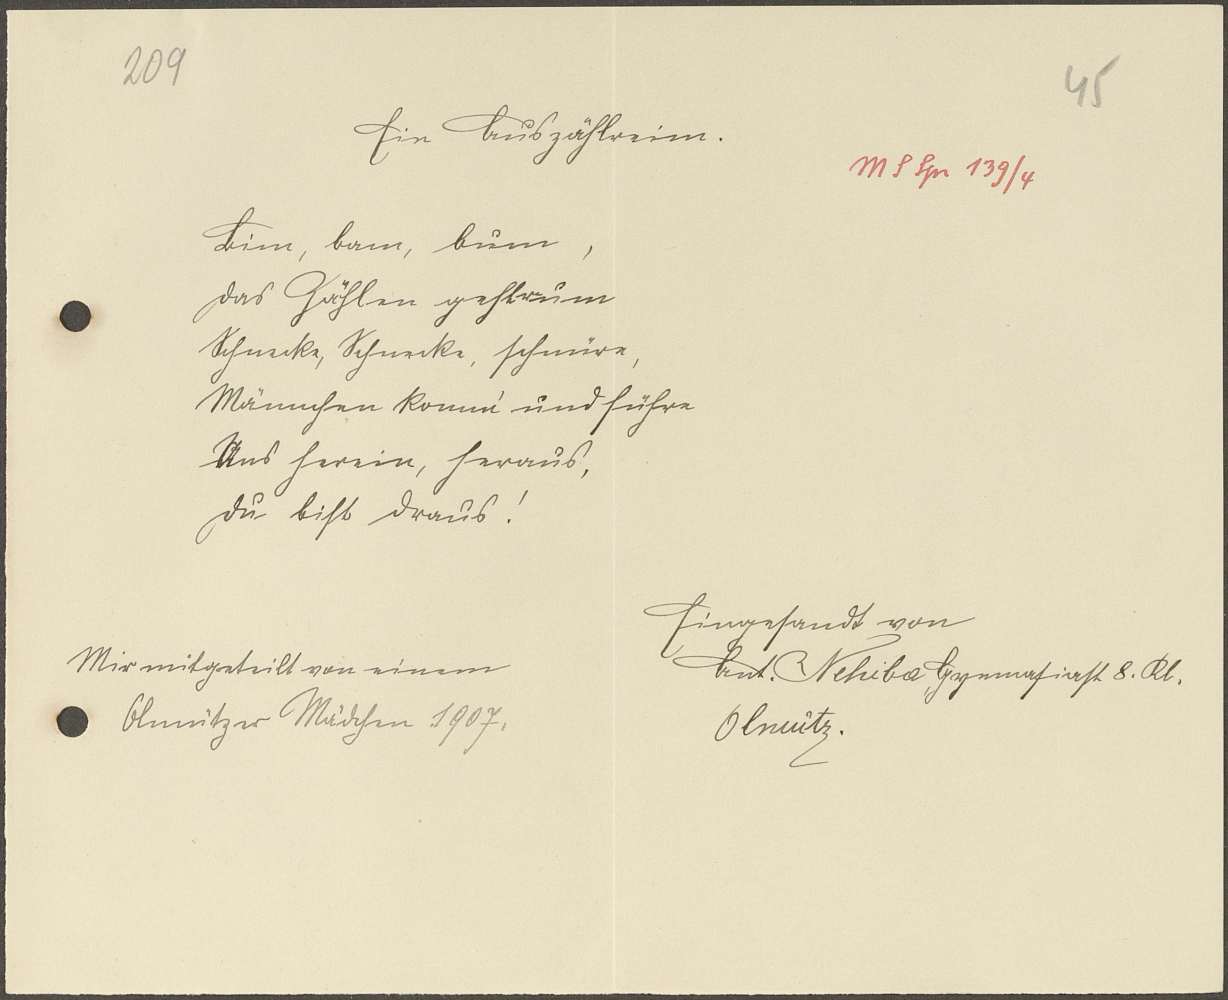 209
45
Ein Auszählreim.
M S Spr 139/4
Bim, bam, bum,
das Zählen geht rum
Schnecke, Schnecke, schnüre,
Männchen komm' und führe
Uns herein, heraus,
du bist draus!
Eingesandt von
Ant. Nehiba Gymnasiast 8. Kl.
Olmütz.
Mir mitgeteilt von einem
Olmützer Mädchen 1907.